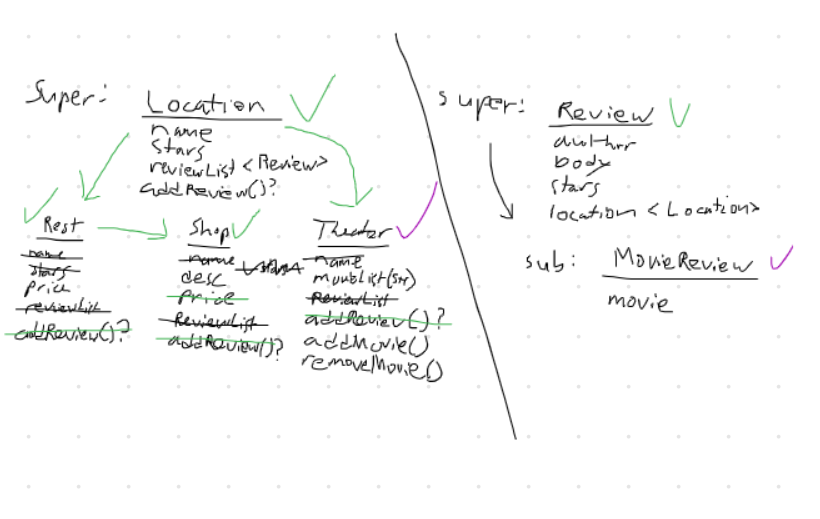 Super:
Location
name
stars
reviewList <Review>
addReview()?
Rest
name
stars
price
reviewList
addReview()?
Shop
name
desc
price
ReviewList
addReview()?
Theater
name
movieList(str)
ReviewList
addReview()?
addMovie()
removeMovie()
super:
Review
author
body
stars
location <Location>
sub:
MovieReview
movie